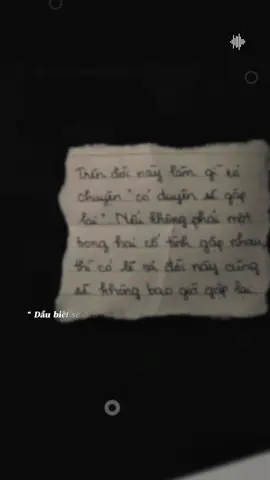 Trên đời này làm gì có
chuyện "có duyên sẽ gặp
lại". Nếu không phải một
trong hai cố tình gặp nhau
thì có lẽ cả đời này cũng
sẽ không bao giờ gặp lại...
" Dẫu biết